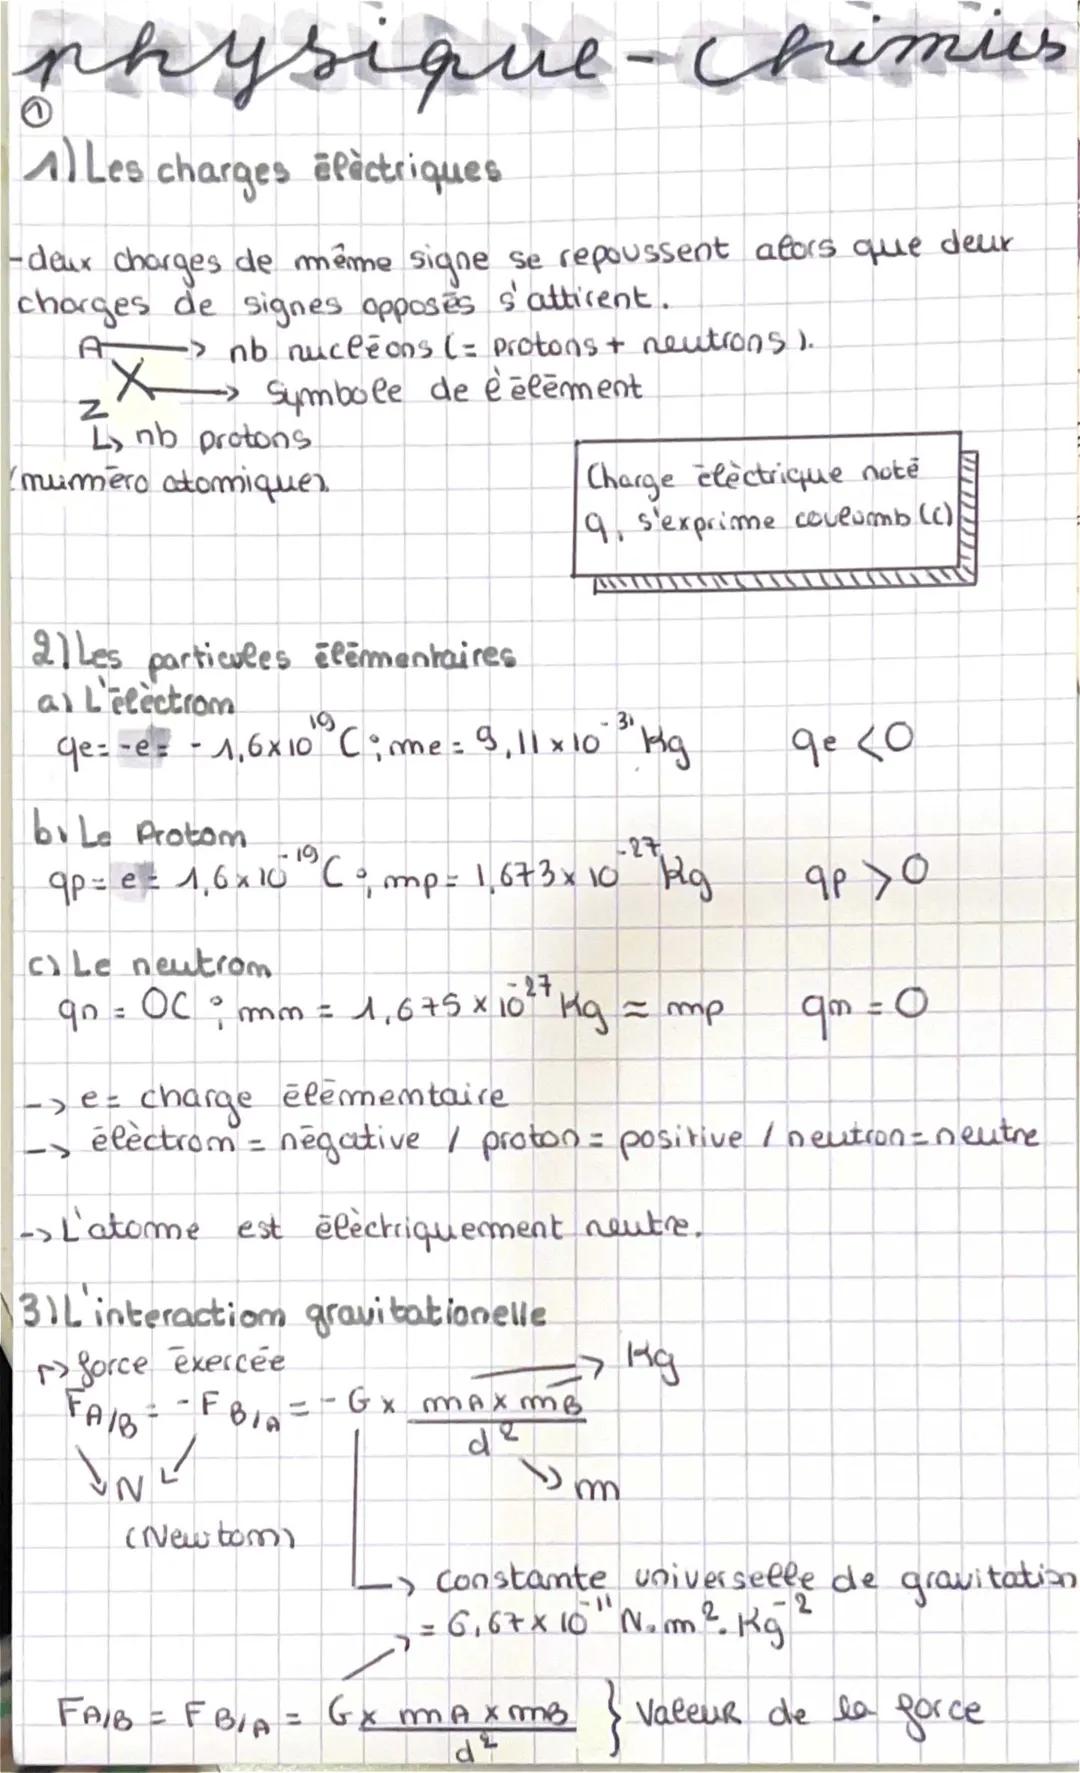 physique-chimies
①
1) Les charges élèctriques
-deux charges de même signe se repoussent alors que deux
charges de signes opposés s'attirent.
A → nb nucléons (= protons + neutrons).
X → Symbole de l'élément
Z
↳ nb protons
(numéro atomique)
Charge élèctrique noté
q, s'exprime couloumb (C)
2) Les particules élémentaires
a) L'élèctron
qe = -e = -1,6×10¹⁹ C ; me = 9,11×10⁻³¹ Kg qe <0
b) Le Proton
qp = e = 1,6×10⁻¹⁹ C ; mp = 1,673×10⁻²⁷ kg qp >0
c) Le neutron
qn = 0C ; mn = 1,675×10⁻²⁷ Kg ≈ mp qn = 0
-> e = charge élémentaire
-> élèctron = négative / proton = positive / neutron = neutre
-> L'atome est élèctriquement neutre.
3) L'interaction gravitationelle
↱> force exercée → Kg
FA/B = -FB/A = -G × mA × mB / d²
↘ N ↙ ↘ m
(Newton)
↳ constante universelle de gravitation
= 6,67×10⁻¹¹ N.m².Kg⁻²
FA/B = FB/A = G × mA × mB / d² } Valeur de la force